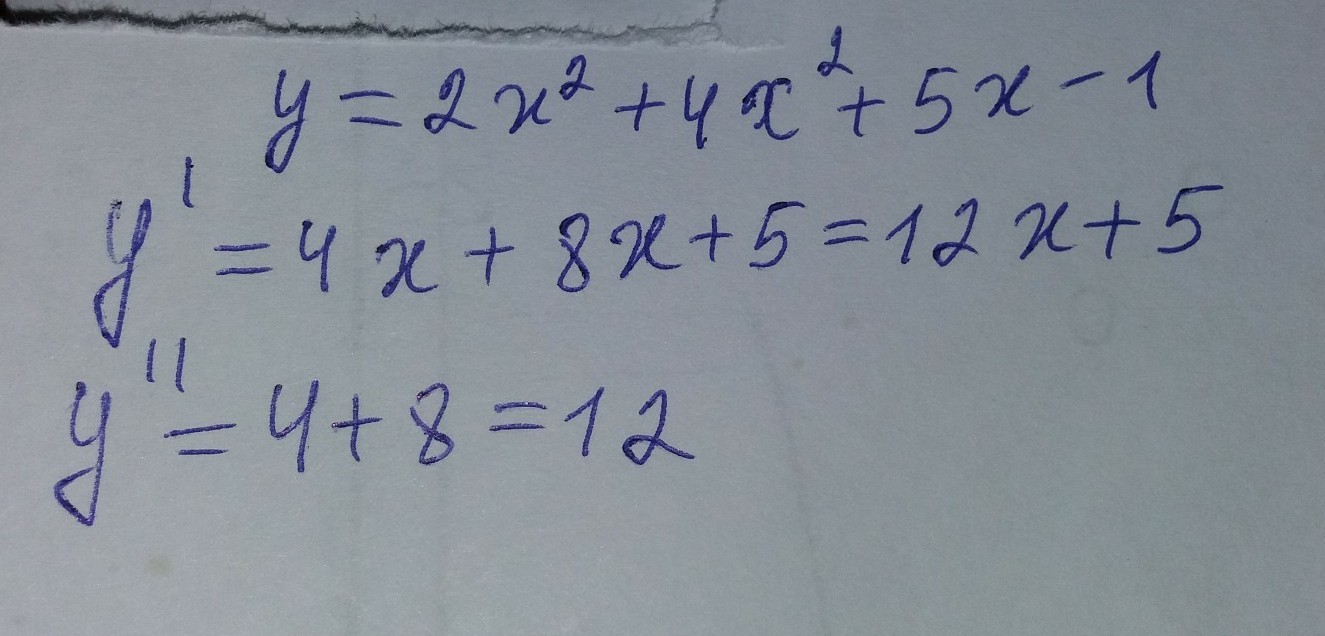 y = 2x² + 4x² + 5x - 1
y' = 4x + 8x + 5 = 12x + 5
y'' = 4 + 8 = 12